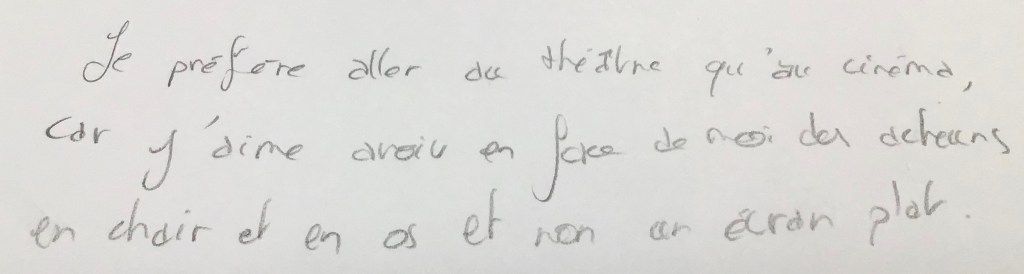 Je préfère aller au théâtre qu'au cinéma,
car j'aime avoir en face de moi des acteurs
en chair et en os et non un écran plat.